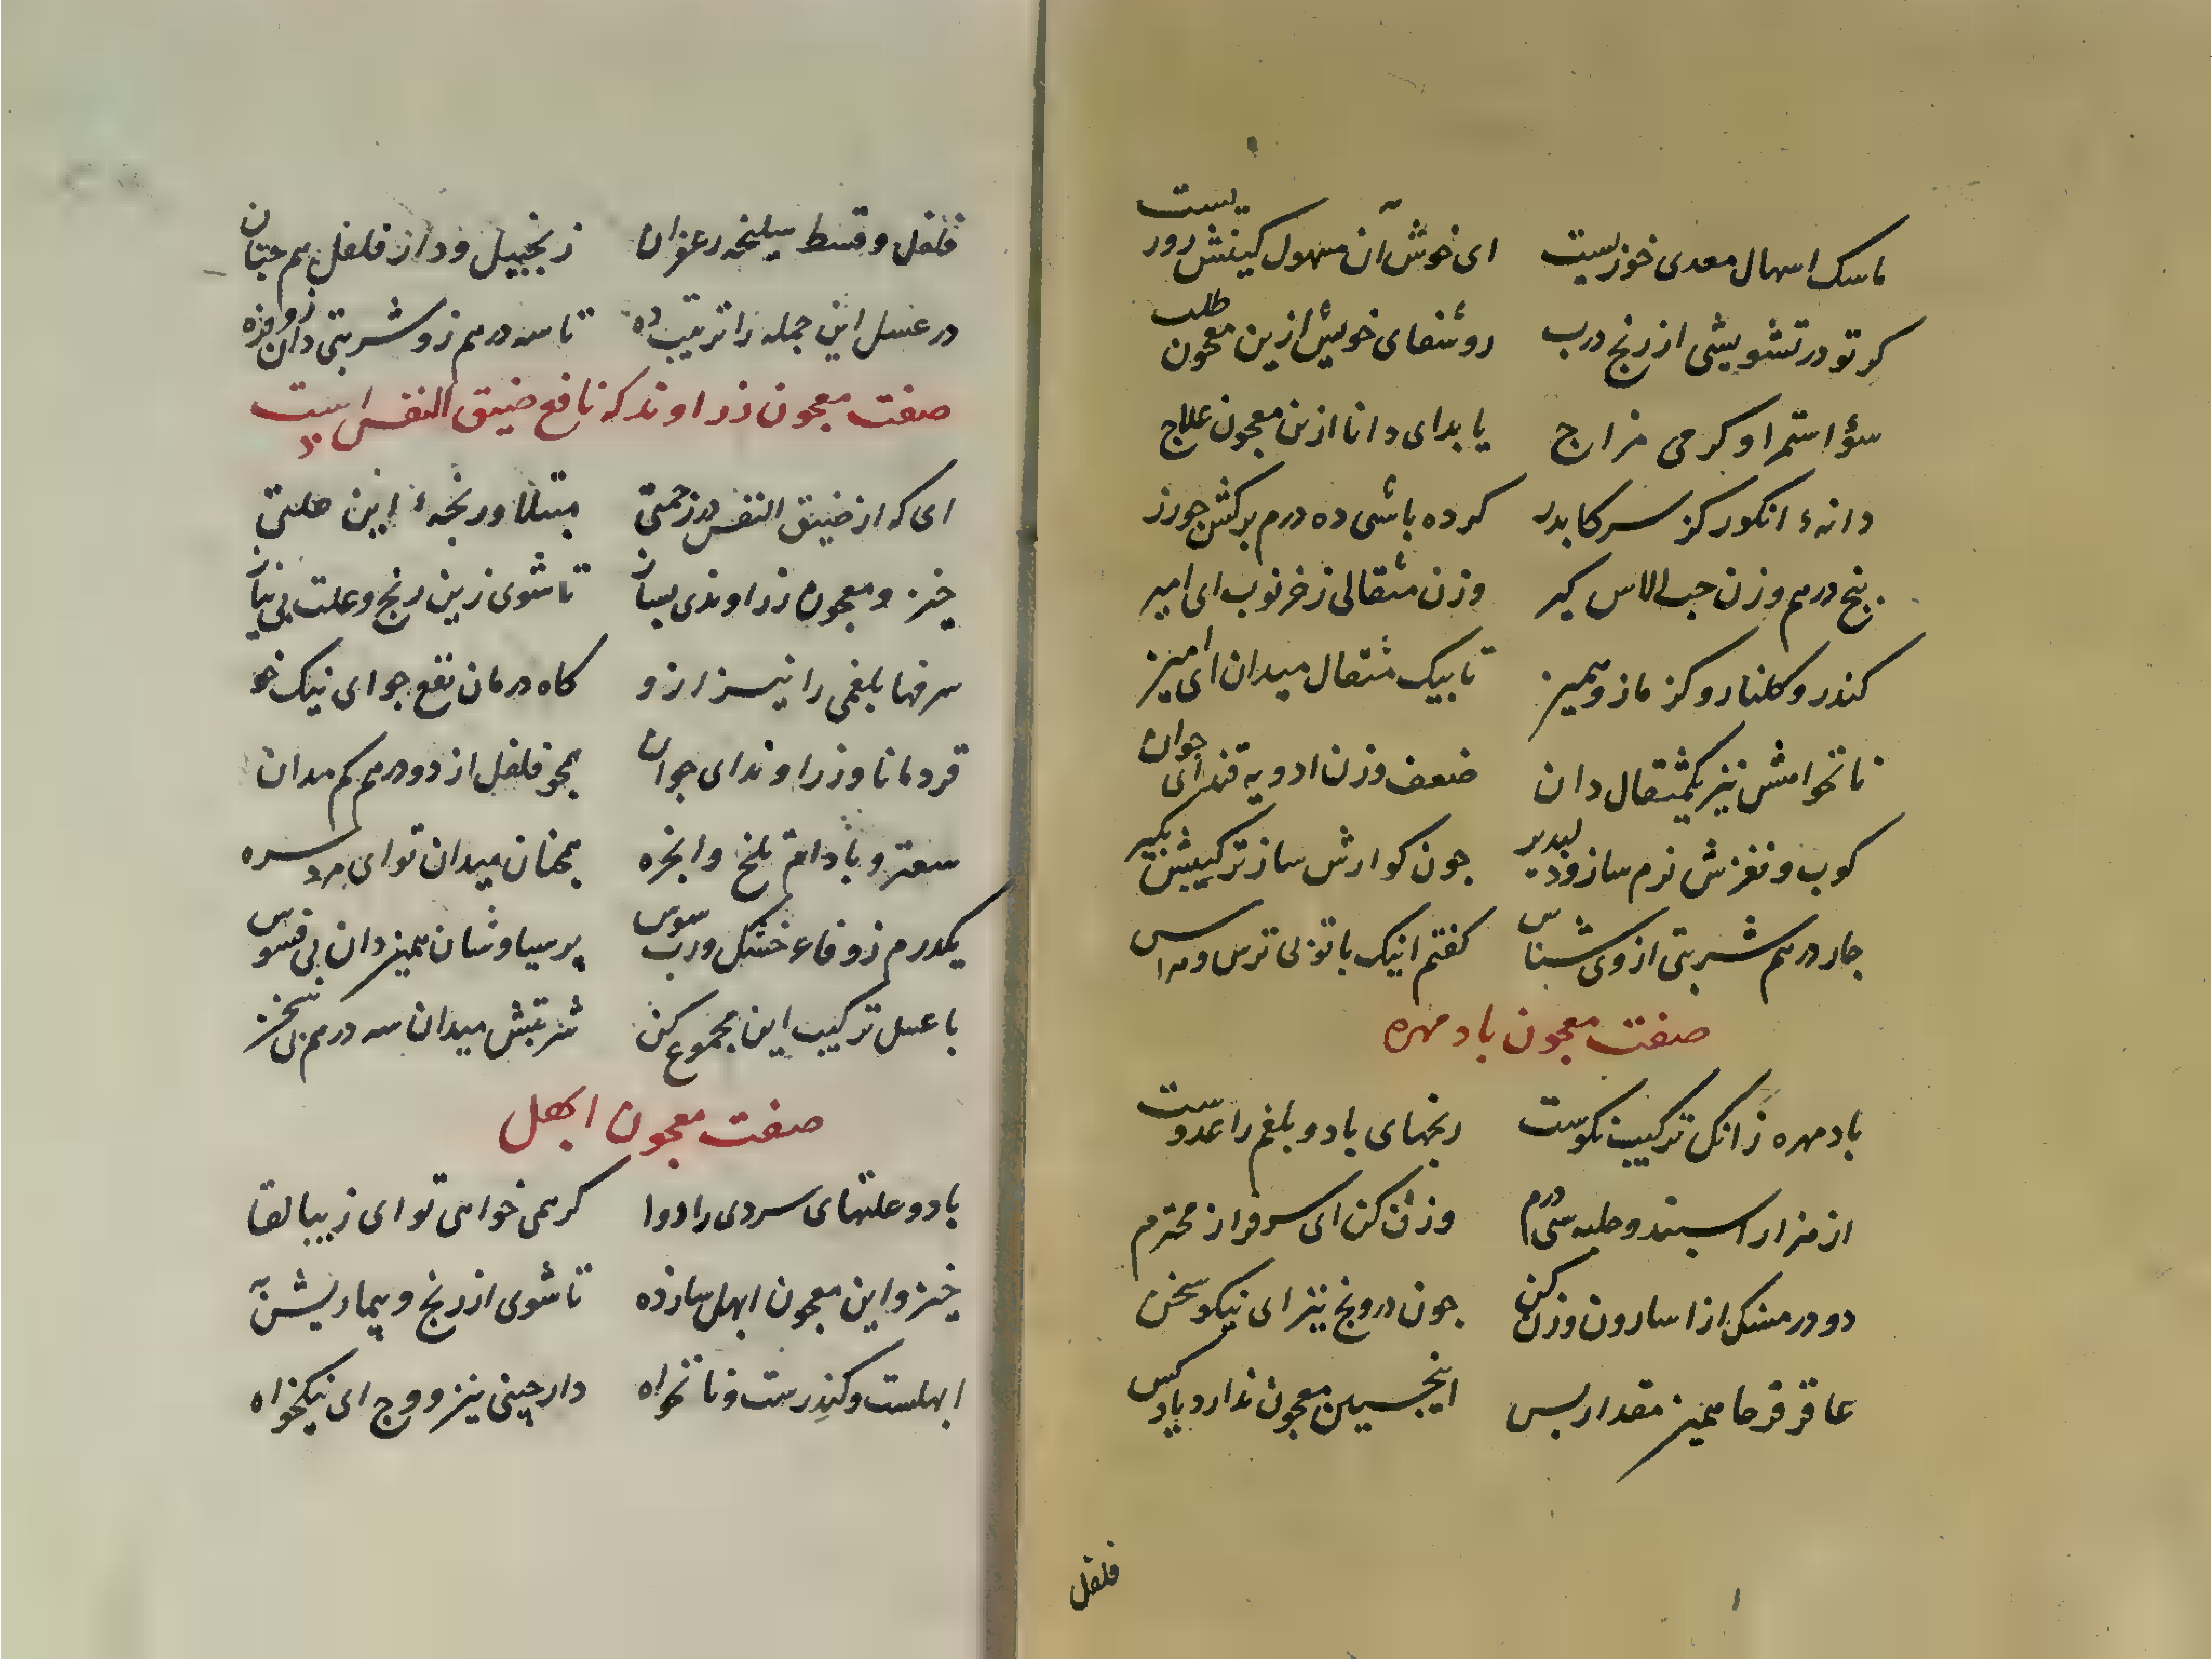 ماسک اسهال معدی خوزیست ای خوش آن مسهول کینش روریست
کر تو در تشویشی از رنج درب رو شفای خویش ازین معجون طلب
سؤ استمرا و کرمی مزاج یابد ای دانا ازین معجون علاج
دانهٔ انکور کز سرکا بدر کرده باشی ده درم برکش جو زر
پنج درهم وزن حب الاس کیر وزن مثقالی ز خرنوب ای امیر
کندر و کلنار و کزمازو همیز تا بیک مثقال میدان ای امیز
نانخوامش نیز یکمثقال دان ضعف وزن ادویه قند ای جوان
کوب و نغزش نرم ساز و دلپذیر جون کوارش ساز ترکیبش بکیر
جار درهم شربتی از وی شناس کفتم اینک با تو بی ترس و هراس
صفت معجون باد مهره
باد مهره زانک ترکیب نکوست رنجهای باد و بلغم را عدوست
از هزار اسبند و حلبه سی درم وزن کن ای سرفراز محترم
دو درمسنک از اسارون وزن کن جون درونج نیز ای نیکو سخن
عاقرقرحا همیز مقدار بس اینجنین معجون ندارد یاد کس
فلفل
فلفل و قسط سلیخه زعفران زنجبیل و دار فلفل هم جنان
در عسل این جمله را ترتیب ده تا سه درهم زو شربتی دان
صفت معجون زراوند که نافع ضیق النفس است
ای که از ضیق النفس در زحمتی مبتلا و رنجهٔ این علتی
خیز و معجون زراوندی بساز تا شوی زین رنج و علت بی نیاز
سرفها بلغمی را نیز ازو کاه درمان نفع جو ای نیک خو
قردمانا و زراوند ای جوان همجو فلفل از دو درهم کم مدان
سعتر و بادام تلخ و انجره همجنان میدان تو ای مرد سره
یکدرم زوفاء خشک و رب سوس پرسیاوشان همیز دان بی فسوس
با عسل ترکیب این مجموع کن شربتش میدان سه درهم بی سخن
صفت معجون ابهل
باد و علتهای سردی را دوا کر همی خواهی تو ای زیبا لقا
خیز و این معجون ابهل ساز ده تا شوی از رنج و بیماریش به
ابهلست و کندرست و نانخواه دارچینی نیز و وج ای نیکخواه